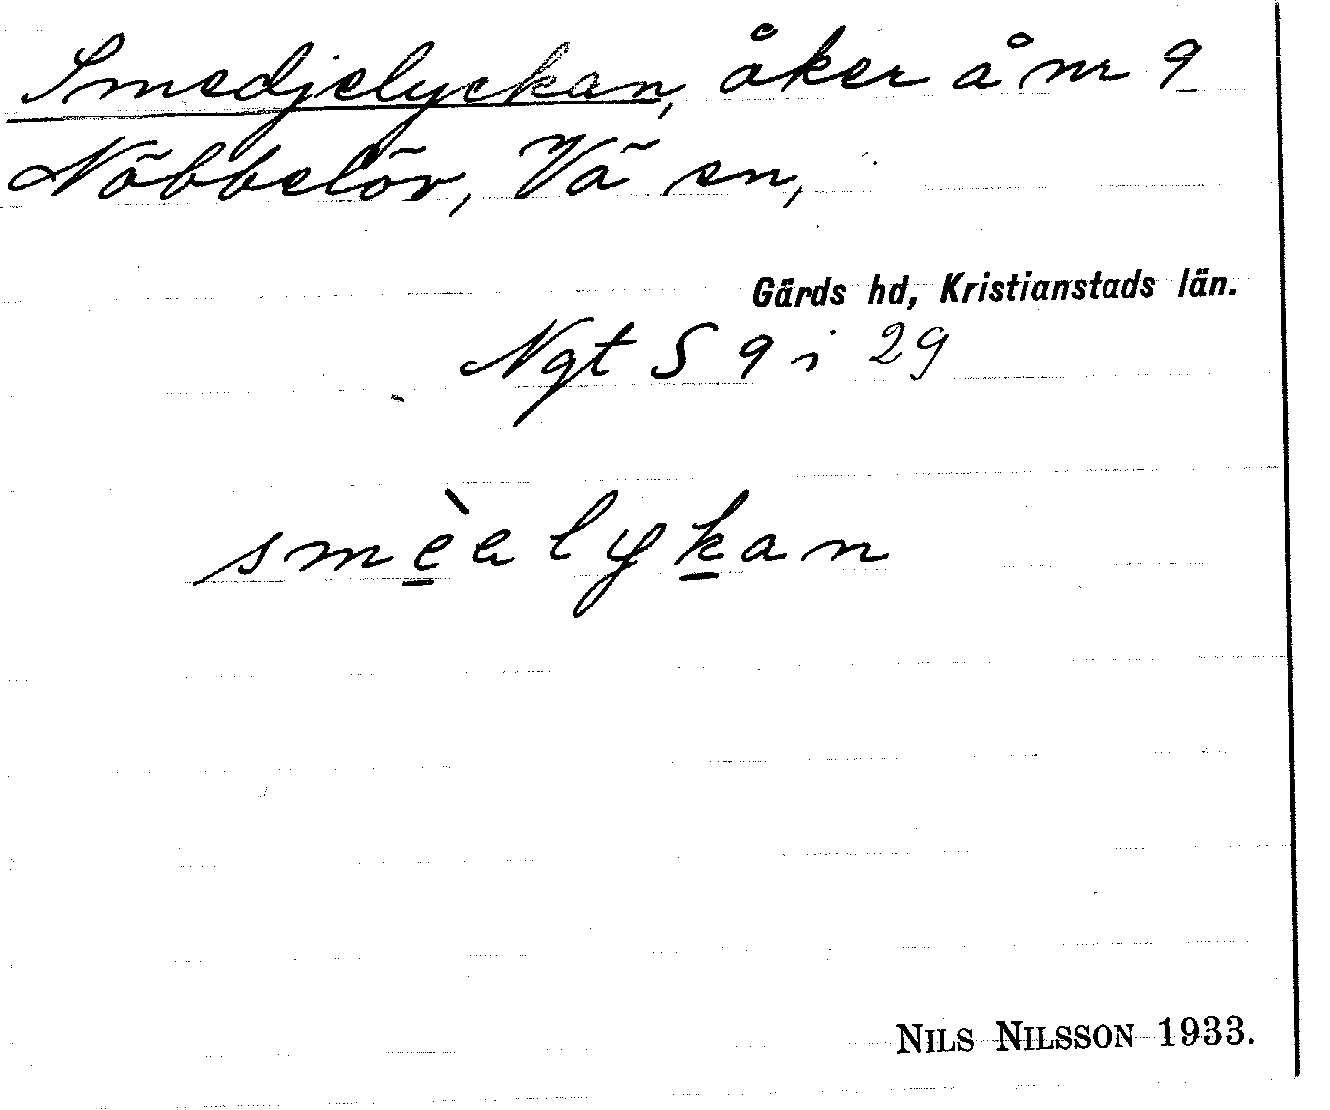 Smedjelyckan, åker å nr 9
Nöbbelöv, Vä sn,
Gärds hd, Kristianstads län.
Ngt S 9 i 29
smèalykan
Nils Nilsson 1933.